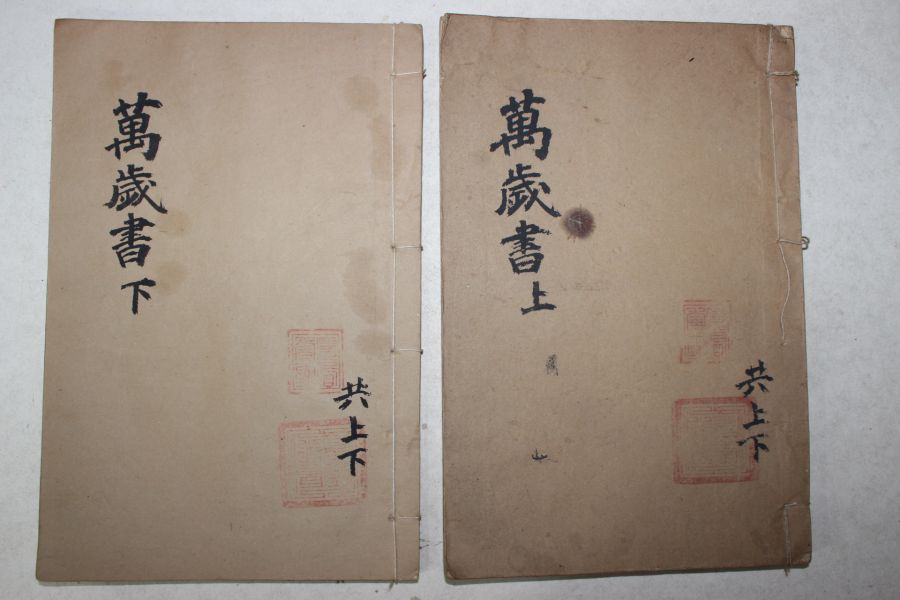 萬歲書上
共上下
萬歲書下
共上下